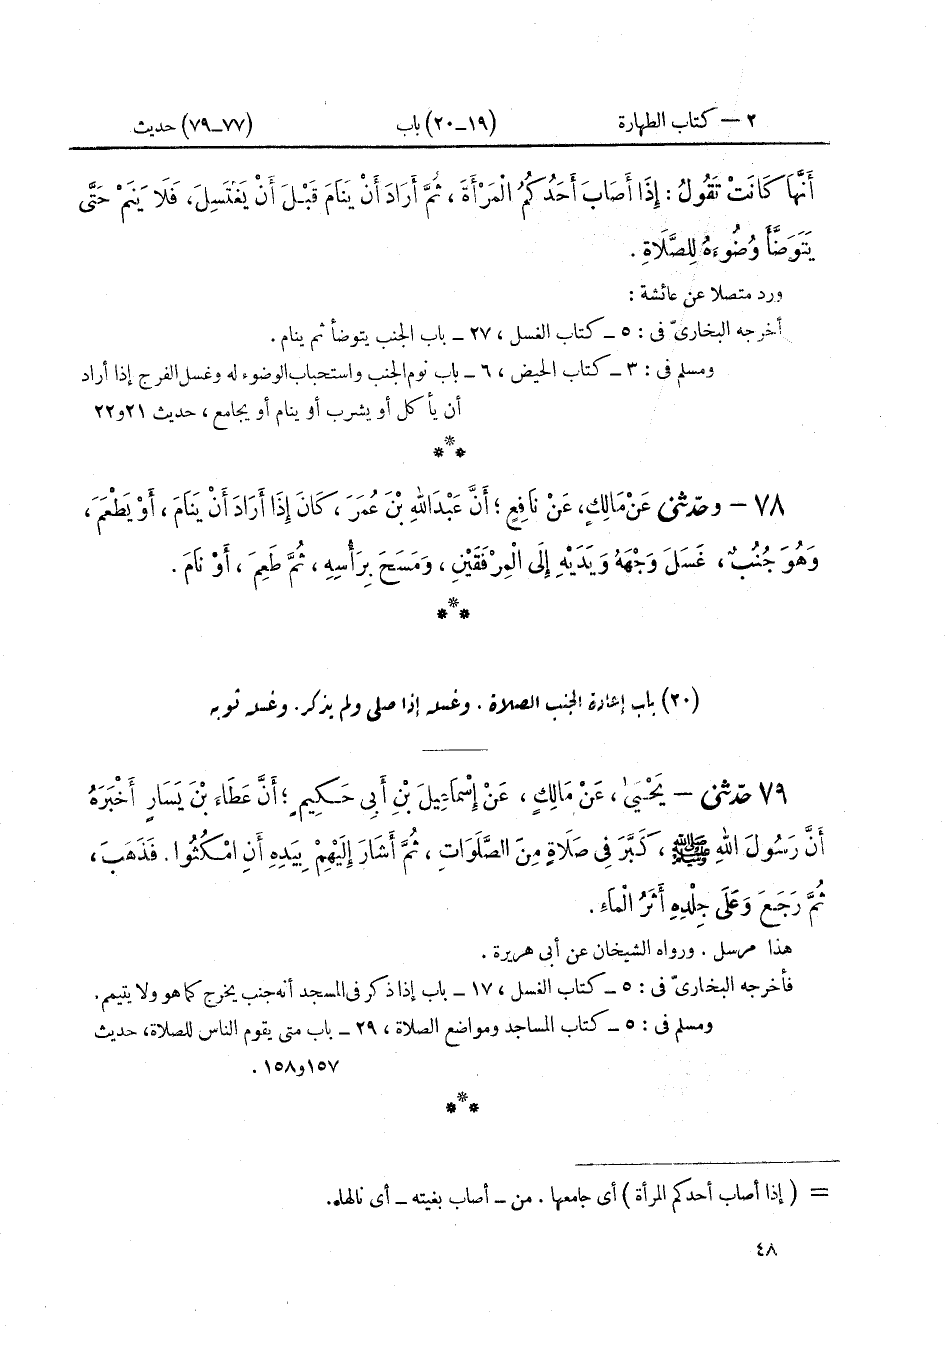 ٢ — كتاب الطهارة (١٩_٢٠) باب (٧٧_٧٩) حديث
أَنَّهَا كَانَتْ تَقُولُ : إِذَا أَصَابَ أَحَدُكُمُ الْمَرْأَةَ ، ثُمَّ أَرَادَ أَنْ يَنَامَ قَبْلَ أَنْ يَغْتَسِلَ، فَلَا يَنَمْ حَتَّى
يَتَوَضَّأَ وُضُوءَهُ لِلصَّلَاةِ .
ورد متصلا عن عائشة :
أخرجه البخارىّ فى : ٥ ــ كتاب الغسل ، ٢٧ ــ باب الجنب يتوضأ ثم ينام .
ومسلم فى : ٣ ــ كتاب الحيض ، ٦ ــ باب نوم الجنب واستحباب الوضوء له وغسل الفرج إذا أراد
أن يأكل أو يشرب أو ينام أو يجامع ، حديث ٢١ و ٢٢
***
٧٨ – وحدّثنى عَنْ مَالِكٍ، عَنْ نَافِعٍ ؛ أَنَّ عَبْدَ اللهِ بْنَ عُمَرَ ، كَانَ إِذَا أَرَادَ أَنْ يَنَامَ ، أَوْ يَطْعَمَ ،
وَهُوَ جُنُبٌ ، غَسَلَ وَجْهَهُ وَيَدَيْهِ إِلَى الْمِرْفَقَيْنِ ، وَمَسَحَ بِرَأْسِهِ ، ثُمَّ طَعِمَ ، أَوْ نَامَ .
***
(٢٠) باب إعادة الجنب الصلاة . وغسله إذا صلى ولم يذكر . وغسله ثوبه
٧٩ حدّثنى – يَحْيَىٰ ، عَنْ مَالِكٍ ، عَنْ إِسْمَاعِيلَ بْنِ أَبِى حَكِيمٍ ؛ أَنَّ عَطَاءَ بْنَ يَسَارٍ أَخْبَرَهُ
أَنَّ رَسُولَ اللهِ ﷺ ، كَبَّرَ فِى صَلَاةٍ مِنَ الصَّلَوَاتِ ، ثُمَّ أَشَارَ إِلَيْهِمْ بِيَدِهِ أَنِ امْكُثُوا . فَذَهَبَ ،
ثُمَّ رَجَعَ وَعَلَى جِلْدِهِ أَثَرُ الْمَاءِ .
هذا مرسل . ورواه الشيخان عن أبى هريرة .
فأخرجه البخارىّ فى : ٥ ــ كتاب الغسل ، ١٧ ــ باب إذا ذكر فى المسجد أنه جنب يخرج كما هو ولا يتيمم .
ومسلم فى : ٥ ــ كتاب المساجد ومواضع الصلاة ، ٢٩ ــ باب متى يقوم الناس للصلاة، حديث
١٥٧ و ١٥٨ .
***
= ( إذا أصاب أحدكم المرأة ) أى جامعها . من ــ أصاب بغيته ــ أى نالها.
٤٨